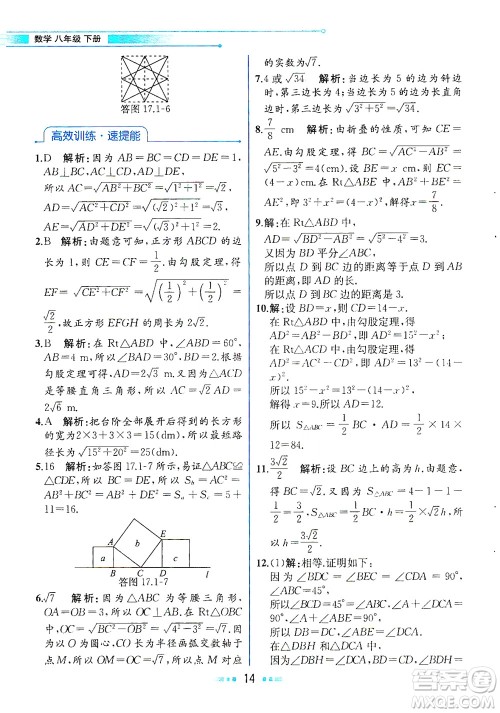 数学 八年级 下册
答图 17.1-6
高效训练·速提能
1.D 解析：因为 AB=BC=CD=DE=1，
∠B=∠ACD=∠ADE=90°，
所以 AC=√(AB²+BC²)=√(1²+1²)=√2，
AD=√(AC²+CD²)=√3，
AE=√(AD²+DE²)=2.
2.B 解析：由题意可知，正方形 ABCD 的
边长为 1，所以 CE=CF=1/2，由勾股定理，得
EF=√(CE²+CF²)=√((1/2)²+(1/2)²)=
√2/2，故正方形 EFGH 的周长为 2√2.
3.B 解析：
AB=4，所以 BD=2，
据勾股定理可得 AD=2√3.
是等腰直角三角形，所以 AC=√2 AD=
2√6.
4.A 解析：把台阶全部展开后得到的长方形
的宽为 2×3+3×3=15(dm)，所以最短路径
长为 √(15²+20²)=25(dm).
5.16 解析：如答图 17.1-7，易证△ABC≌
△CDE，所以 BC=DE，所以 AC²=
AB²+BC²=AB²+DE²=Sa+Sc=5+
11=16.
A
B
C
D
E
答图 17.1-7
6.√7 解析：因为△ABC 为等腰三角形，
OA=OB=3，所以 OC⊥AB. 在 Rt△OBC
中，OC=√(BC²-OB²)=√(4²-3²)=√7. 因为
以点 O 为圆心，OC 长为半径画弧交数轴于
点 M，所以 OM=OC=√7，所以点 M 对应
的实数为 √7.
7.4 或 √34 解析：当边长为 5 的边为斜边
时，第三边长为 √(5²-3²)=4；当边长为 5 的
边为直角边时，第三边长为
√(3²+5²)=√34.
8.7/8 cm 解析：由折叠的性质可知，BE=
AE. 由勾股定理，得 BC=√(AB²-AC²)=
√(5²-3²)=4(cm). 设 CE=x cm，则 BE=AE=
(4-x)cm，所以 x²+3²=(4-x)²，解得 x=7/8.
9.解：在 Rt△ABD 中，∠A=90°，所以 AD=
√(BD²-AB²)=√(13²-12²)=5.
又因为 BD 平分∠ABC，
所以点 D 到 BC 的距离等于点 D 到 AB 的
距离，所以点 D 到 BC 的距离是 5.
10.解：设 BD=x，则 CD=14-x.
在 Rt△ABD 中，由勾股定理，得
AD²=AB²-BD²=15²-x².
在 Rt△ACD 中，由勾股定理，得
AD²=AC²-CD²=13²-(14-x)²，
所以 15²-x²=13²-(14-x)²，
解得 x=9. 所以 AD=12.
所以 S△ABC=1/2 BC·AD=1/2×14×
12=84.
11.3√2/2 解析：设 BC 边上的高为 h，由题意，
得 BC=√2，S△ABC=4-1-1-
1/2=3/2. 因为 S△ABC=1/2 BC·h，所以 h=
3√2/2.
12.(1)解：相等. 证明如下：
因为∠BDC=∠BEC=∠CDA=90°，
∠ABC=45°，
所以∠BCD=45°=∠ABC，
所以 DB=DC，∠A+∠DCA=90°，
14
答案圈
MXQE.COM